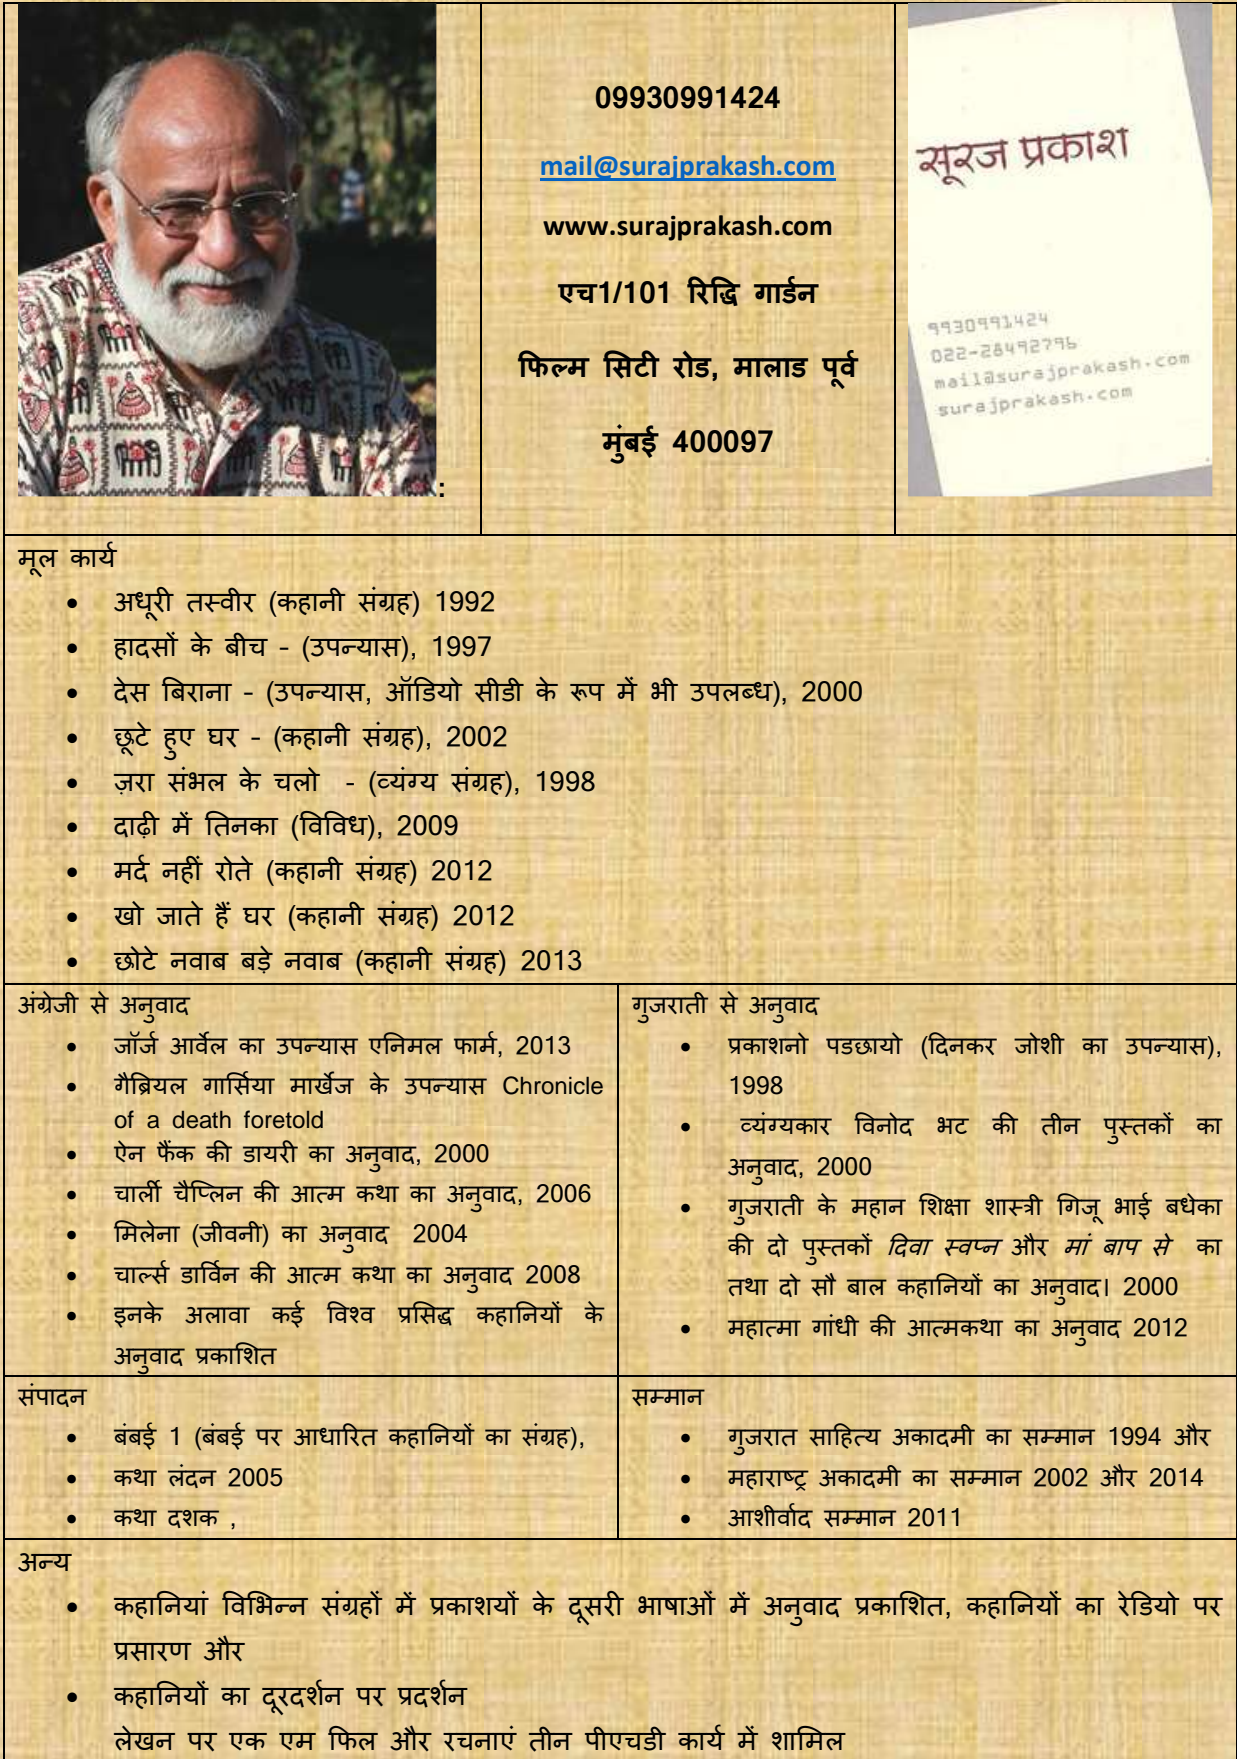 09930991424
mail@surajprakash.com
www.surajprakash.com
एच1/101 रिद्धि गार्डन
फिल्म सिटी रोड, मालाड पूर्व
मुंबई 400097
:
सूरज प्रकाश
9930991424
022-28492796
mail@surajprakash.com
surajprakash.com
मूल कार्य
• अधूरी तस्वीर (कहानी संग्रह) 1992
• हादसों के बीच – (उपन्यास), 1997
• देस बिराना – (उपन्यास, ऑडियो सीडी के रूप में भी उपलब्ध), 2000
• छूटे हुए घर – (कहानी संग्रह), 2002
• ज़रा संभल के चलो - (व्यंग्य संग्रह), 1998
• दाढ़ी में तिनका (विविध), 2009
• मर्द नहीं रोते (कहानी संग्रह) 2012
• खो जाते हैं घर (कहानी संग्रह) 2012
• छोटे नवाब बड़े नवाब (कहानी संग्रह) 2013
अंग्रेजी से अनुवाद
• जॉर्ज आर्वेल का उपन्यास एनिमल फार्म, 2013
• गैब्रियल गार्सिया मार्खेज के उपन्यास Chronicle
of a death foretold
• ऐन फैंक की डायरी का अनुवाद, 2000
• चार्ली चैप्लिन की आत्म कथा का अनुवाद, 2006
• मिलेना (जीवनी) का अनुवाद 2004
• चार्ल्स डार्विन की आत्म कथा का अनुवाद 2008
• इनके अलावा कई विश्व प्रसिद्ध कहानियों के
अनुवाद प्रकाशित
गुजराती से अनुवाद
• प्रकाशनो पडछायो (दिनकर जोशी का उपन्यास),
1998
• व्यंग्यकार विनोद भट की तीन पुस्तकों का
अनुवाद, 2000
• गुजराती के महान शिक्षा शास्त्री गिजू भाई बधेका
की दो पुस्तकों दिवा स्वप्न और मां बाप से का
तथा दो सौ बाल कहानियों का अनुवाद। 2000
• महात्मा गांधी की आत्मकथा का अनुवाद 2012
संपादन
• बंबई 1 (बंबई पर आधारित कहानियों का संग्रह),
• कथा लंदन 2005
• कथा दशक ,
सम्मान
• गुजरात साहित्य अकादमी का सम्मान 1994 और
• महाराष्ट्र अकादमी का सम्मान 2002 और 2014
• आशीर्वाद सम्मान 2011
अन्य
• कहानियां विभिन्न संग्रहों में प्रकाशयों के दूसरी भाषाओं में अनुवाद प्रकाशित, कहानियों का रेडियो पर
प्रसारण और
• कहानियों का दूरदर्शन पर प्रदर्शन
लेखन पर एक एम फिल और रचनाएं तीन पीएचडी कार्य में शामिल